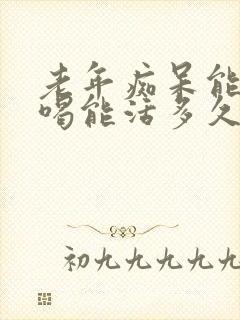 老年痴呆能
喝能活多久
初九九九九九